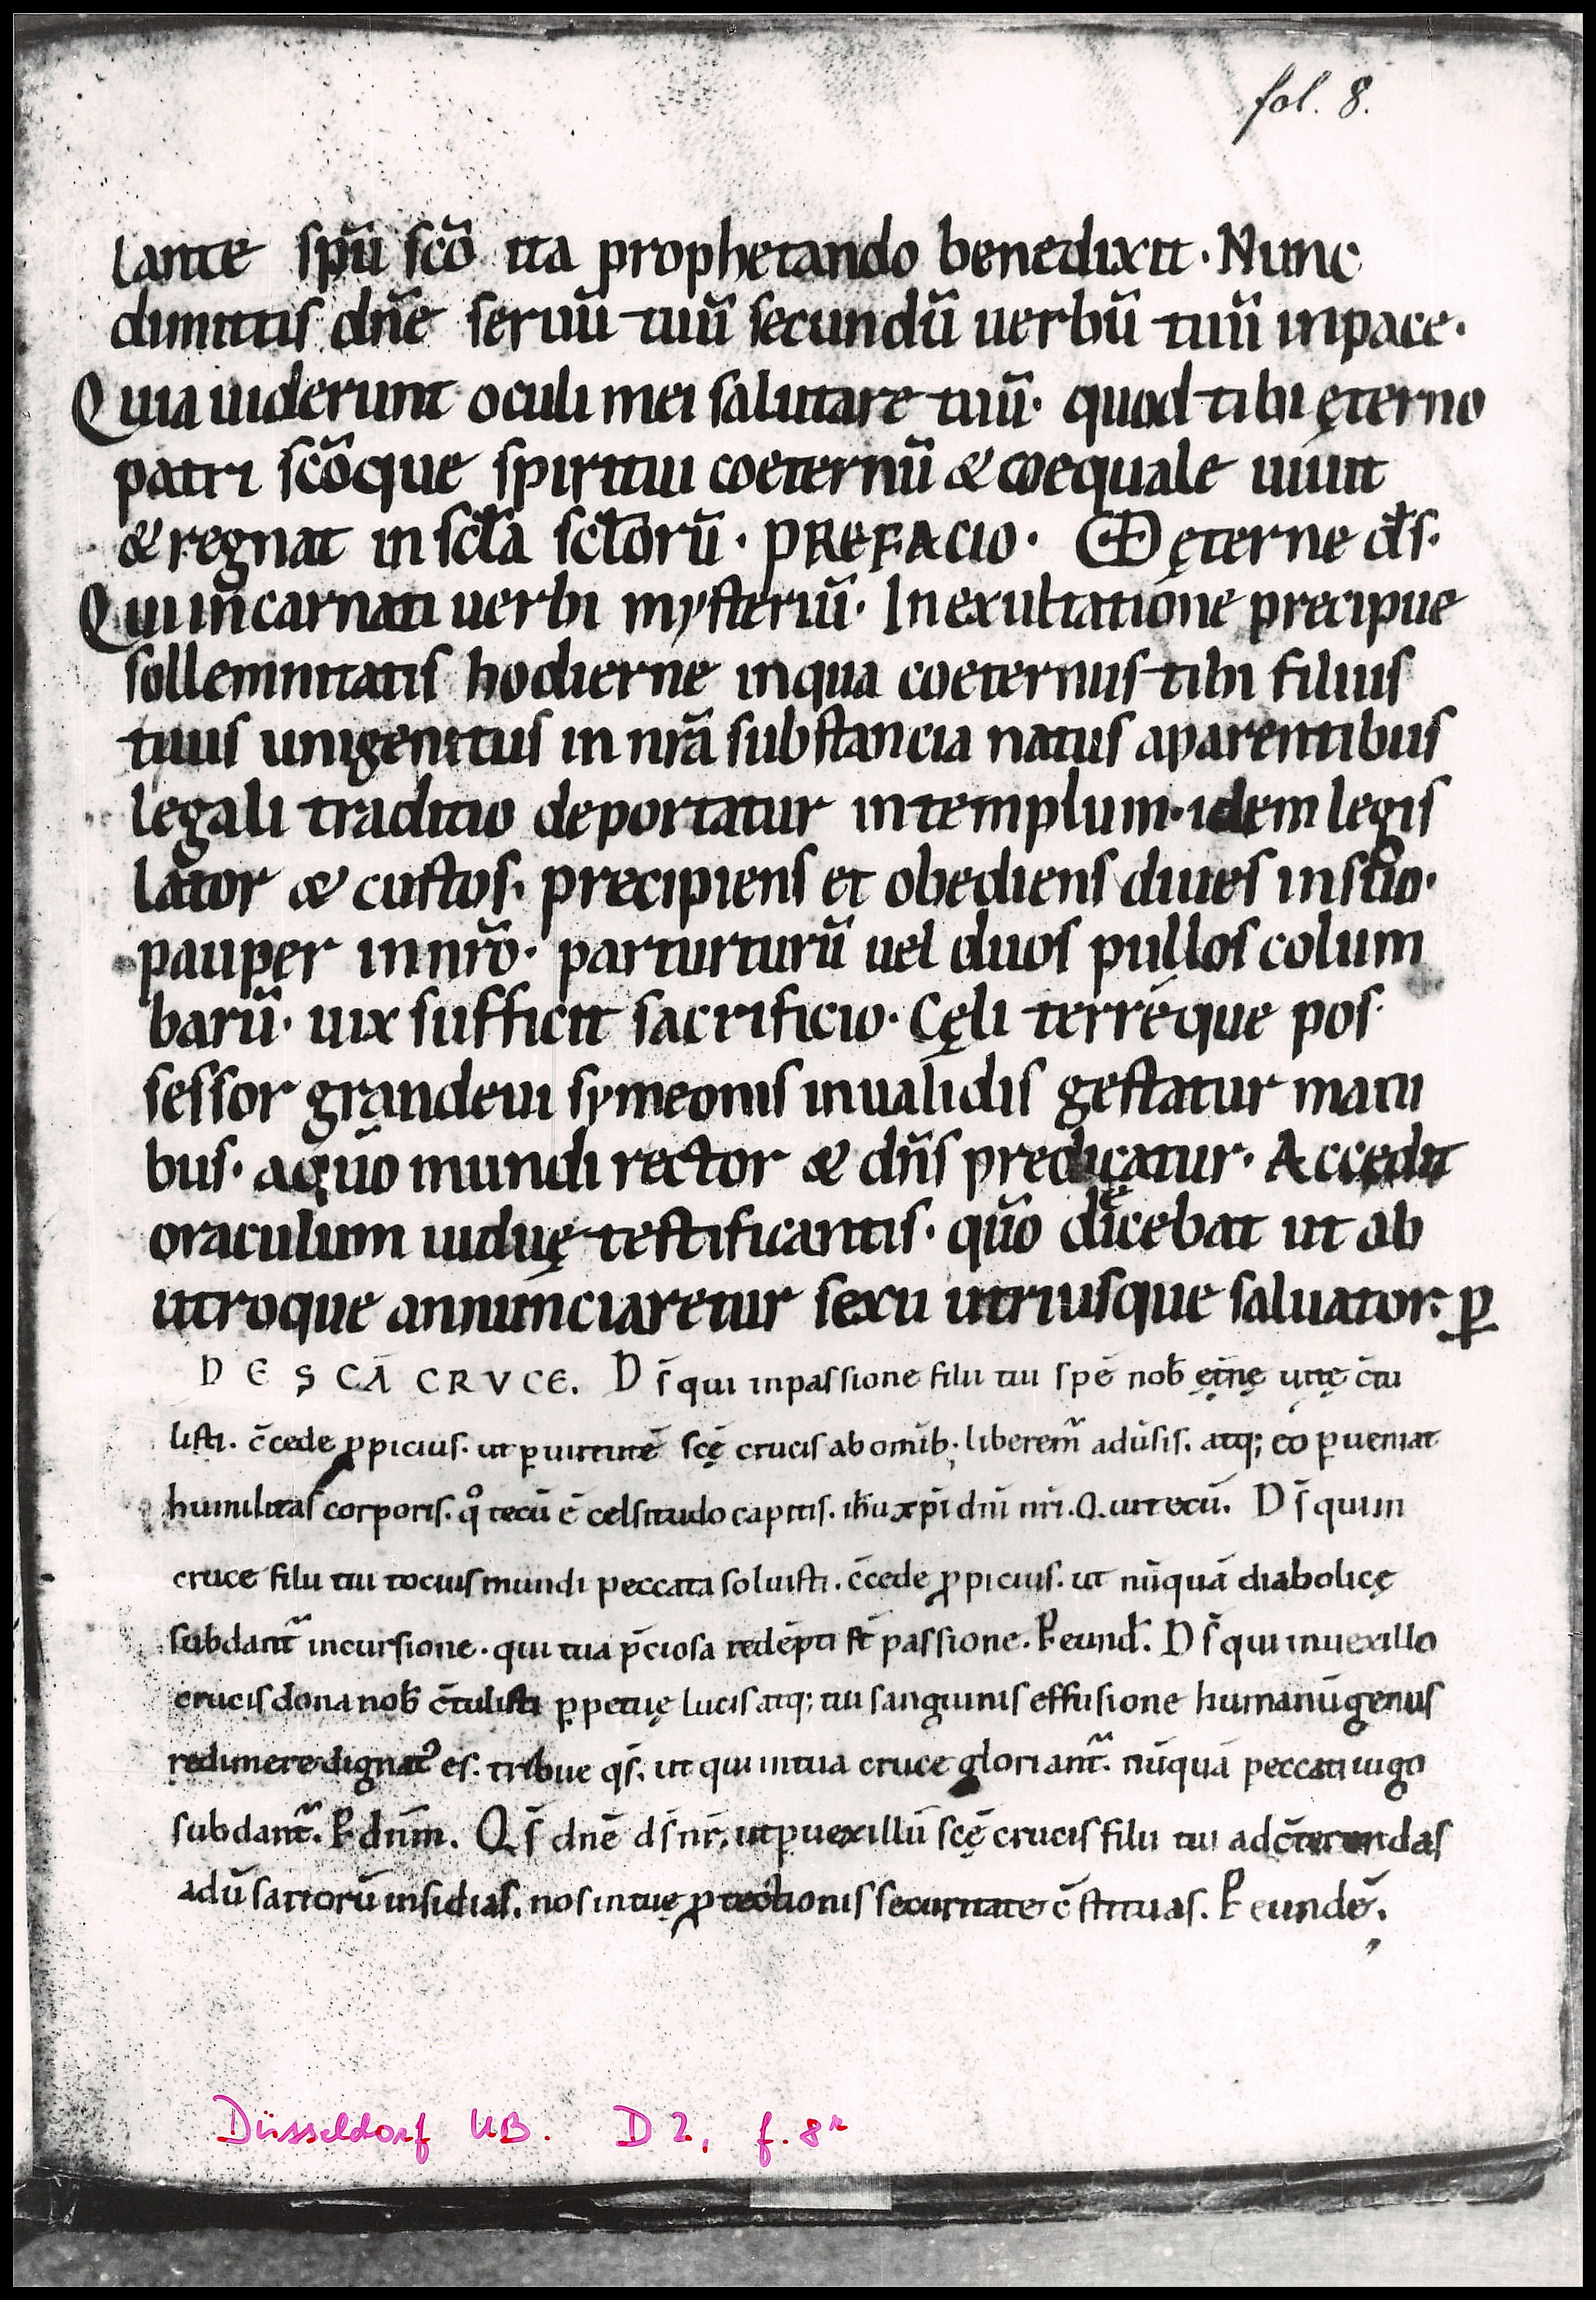 fol. 8.
lante spū scō ita prophetando benedixit · Nunc
dimittis dn̄e seruū tuū secundū uerbū tuū inpace ·
Quia uiderunt oculi mei salutare tuū · quod tibi ęterno
patri scōque spiritui coeternū & coequale uiuit
& regnat in scl̄a scl̄orū · PREFACIO · ęterne d̄s ·
Qui incarnati uerbi mysteriū · In exultatione precipue
sollemnitatis hodierne inqua coeternus tibi filius
tuus unigenitus in nrā substancia natus aparentibus
legali traditio deportatur intemplum · idem legis
lator & custos · precipiens et obediens diues insuo ·
pauper innrō · parturturū uel duos pullos colum
barū · uix sufficit sacrificio · Cęli terręque pos
sessor grandeui symeonis inualidis gestatur manı
bus · aquo mundi rector & dn̄s predicatur · Accedit
oraculum uiduę testificantis · qūo decebat ut ab
utroque annunciaretur sexu utriusque saluator · ꝑ
DE SCĀ CRVCE . Ds̄ qui inpassione filii tui spē nob̄ ęt̄nę uitę c̄tu
listi . c̄cede ꝓpicius . ut ꝑuirtutē scę̄ crucis ab omīb ; liberem̄ adūsis . atq; eo ꝑueniat
humilitas corporis . qͦ tecū ē celsitudo capitis . ih̄u xp̄i dn̄i nr̄i . Q . uit tecū . Ds̄ qui in
cruce filii tui tocius mundi peccata soluisti . c̄cede ꝓpicius . ut nūquā diabolicę
subdant̄ incursione . qui tua p̄ciosa redēpti st̄ passione . P eund̄ . Ds̄ qui inuexillo
crucis dona nob̄ c̄tulisti ꝑpetuę lucis atq; tui sanguinis effusione humanū genus
redimere dignat᾿ es . tribue qs̄ . ut qui intua cruce gloriant̄ . nūquā peccati iugo
subdant̄ . P dnm̄ . Qs̄ dnē ds̄ nr̄ . ut ꝑuexillū scę̄ crucis filii tui adc̄terendas
adūsariorū insidias . nos intuę ꝓtectionis securitate c̄stituas . P eundē .
Düsseldorf UB. D 2, f. 8r